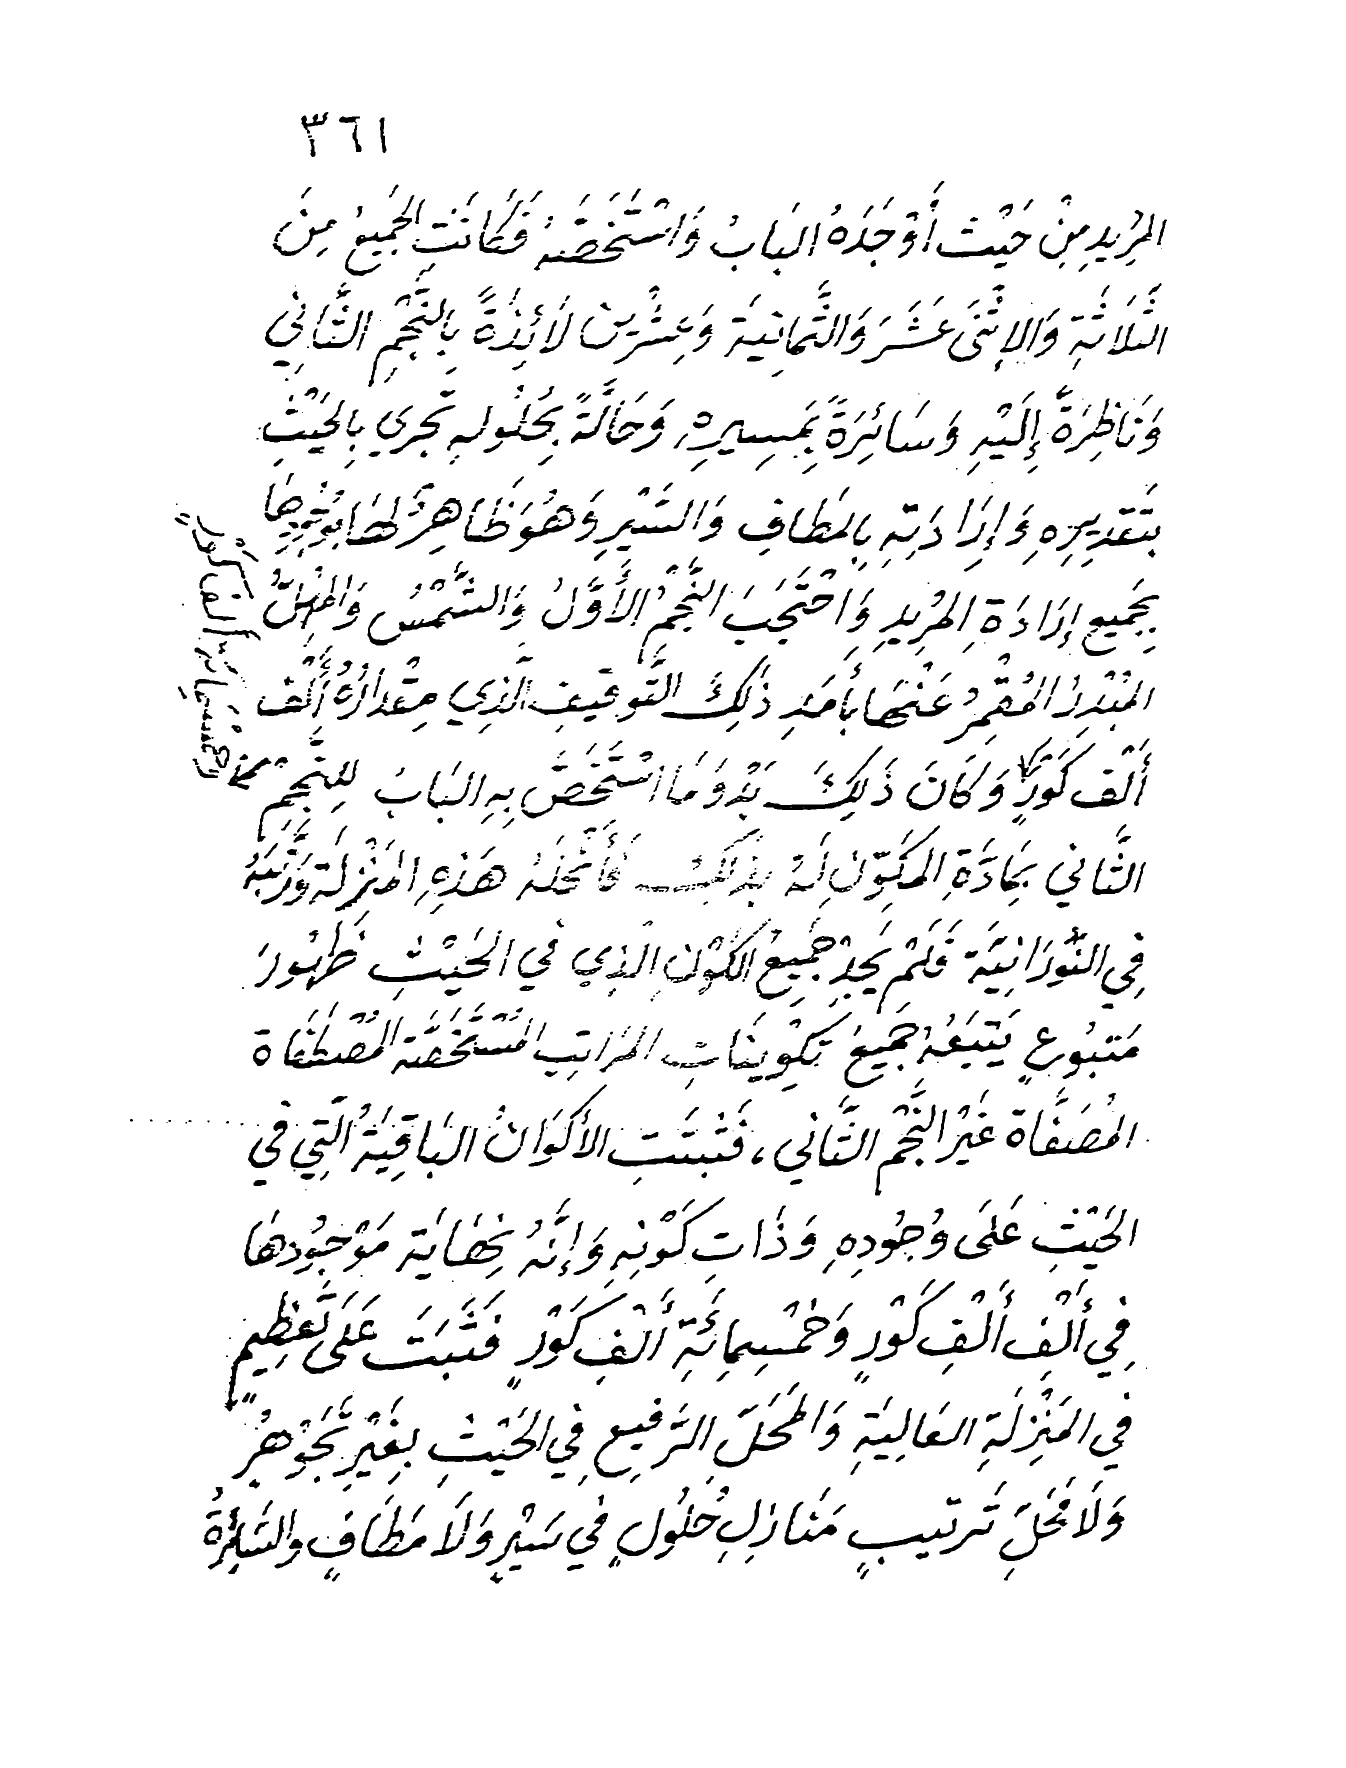 ٣٦١
المُرِيدِ مِنْ حَيْثَ أَوْجَدَهُ البَابُ وَاسْتَخَصَّهُ فَكَانَتِ الجَمِيعُ مِنَ
الثَلَاثَةِ وَالإِثْنَى عَشَرَ وَالثَّمانِيَةَ وَعِشْرِينَ لَائِذَةً بِالنَّجْمِ الثَّانِي
وَنَاظِرَةً إِلَيْهِ وَسَائِرَةً بِمَسِيرِهِ، وَحَالَّةً بِحُلُولِهِ تَجْرِي بِالحَيْثِ
بِتَقْدِيرِهِ وَإِرَادَتِهِ بِالمَطَافِ وَالسَّيْرِ وَهُوَ ظَاهِرٌ لَهَا
بِجَمِيعِ إِرَادَةِ المُرِيدِ وَاحْتَجَبَ النَّجْمُ الأَوَّلُ وَالشَّمْسُ وَالمُهِلُّ
المُبْدِرُ المُقْمِرُ عَنْهَا بِأَمَدِ ذَلِكَ التَّوقِيفِ الَّذِي مِقْدَارُهُ أَلْفَ
أَلْفِ كَوْرٍ وَكَانَ ذَلِكَ بَدْوَ مَا اسْتَخَصَّ بِهِ البَابَ لِلنَّجْمِ
وخمسمائة ألف كَوْرٍ
الثَّانِي بِمَادَّةِ المُكَوِّنِ لَهُ بِذَلِكَ فَأَنْحَلَهُ هَذِهِ المَنْزِلَةَ وَرَتَّبَهُ
فِي النُّورَانِيَّةِ فَلَمْ يَجِدْ جَمِيعُ الكَوْنِ الَّذِي فِي الحَيْثِ ظُهُورَ
مَتبُوعٍ يَتْبَعُهُ جَمِيعُ تَكْوِينَاتِ المَرَاتِبِ المُسْتَخَصَّةِ المُصْطَفَاة
المُصَفَّاة غَيْرَ النَّجْمِ الثَّانِي، فَثَبَتَتِ الأَكْوَانُ البَاقِيَةُ الَّتِي فِي
الحَيْثِ عَلَى وُجُودِهِ وَذَاتِ كَوْنِهِ وَإِنَّهُ نِهَايَةُ مَوْجُودِهَا
فِي أَلْفِ أَلْفِ كَوْرٍ وَخَمْسِمِائَةِ أَلْفِ كَوْرٍ فَثَبَتَ عَلَى تَعْظِيمٍ
فِي المَنْزِلَةِ العَالِيَةِ وَالمَحَلِّ الرَّفِيعِ فِي الحَيْثِ بِغَيْرِ تَجَوْهُرٍ
وَلَا مَحَلِّ تَرتيبٍ مَنَازِلِ حُلُولٍ فِي سَيْرٍ وَلَا مَطَافٍ وَالسَّائِرَةُ